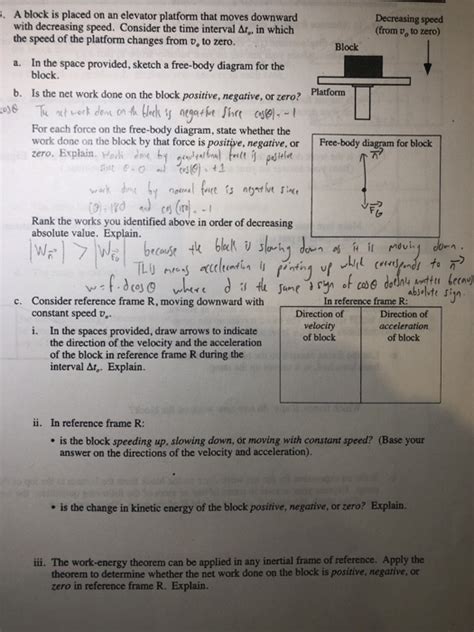 A block is placed on an elevator platform that moves downward
with decreasing speed. Consider the time interval Δtₒ, in which
the speed of the platform changes from vₒ to zero.
Decreasing speed
(from vₒ to zero)
Block
Platform
a. In the space provided, sketch a free-body diagram for the
block.
b. Is the net work done on the block positive, negative, or zero?
cos θ The net work done on the block is negative since cos(θ) = -1
For each force on the free-body diagram, state whether the
work done on the block by that force is positive, negative, or
zero. Explain. Work done by gravitational force is positive
since θ = 0 and cos(θ) = +1
work done by normal force is negative since
(θ) = 180 and cos(180) = -1
Free-body diagram for block
n
F_G
Rank the works you identified above in order of decreasing
absolute value. Explain.
|W_n| > |W_FG| because the block is slowing down as it is moving down.
This means acceleration is pointing up which corresponds to n
w = f · d cos θ where d is the same & sign of cos θ doesn't matter because
absolute sign.
c. Consider reference frame R, moving downward with
constant speed vₒ.
In reference frame R:
Direction of
velocity
of block
Direction of
acceleration
of block
i. In the spaces provided, draw arrows to indicate
the direction of the velocity and the acceleration
of the block in reference frame R during the
interval Δtₒ. Explain.
ii. In reference frame R:
• is the block speeding up, slowing down, or moving with constant speed? (Base your
answer on the directions of the velocity and acceleration).
• is the change in kinetic energy of the block positive, negative, or zero? Explain.
iii. The work-energy theorem can be applied in any inertial frame of reference. Apply the
theorem to determine whether the net work done on the block is positive, negative, or
zero in reference frame R. Explain.